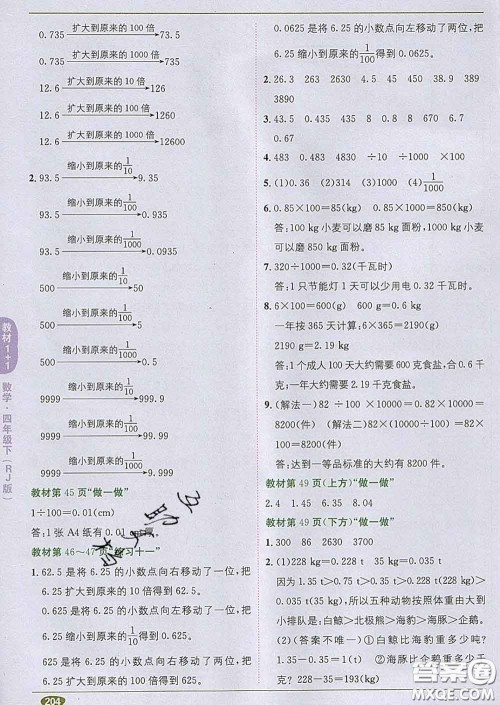 0.735 扩大到原来的 100 倍 73.5
0.735 扩大到原来的 1000 倍 735
12.6 扩大到原来的 10 倍 126
12.6 扩大到原来的 100 倍 1260
12.6 扩大到原来的 1000 倍 12600
2. 93.5 缩小到原来的 1/10 9.35
93.5 缩小到原来的 1/1000 0.0935
500 缩小到原来的 1/10 50
500 缩小到原来的 1/100 5
500 缩小到原来的 1/1000 0.5
9999 缩小到原来的 1/10 999.9
9999 缩小到原来的 1/100 99.99
9999 缩小到原来的 1/1000 9.999
教材第 45 页“做一做”
1÷100=0.01(cm)
答:1 张 A4 纸有 0.01
教材第 46～47 页“练习十一”
1. 62.5 是将 6.25 的小数点向右移动了一位,把
6.25 扩大到原来的 10 倍得到 62.5。
0.625 是将 6.25 的小数点向左移动了一位,把
6.25 缩小到原来的 1/10 得到 0.625。
625 是将 6.25 的小数点向右移动了两位,把
6.25 扩大到原来的 100 倍得到 625。
204
教材1+1
数学·四年级下(RJ版)
0.0625 是将 6.25 的小数点向左移动了两位,把
6.25 缩小到原来的 1/100 得到 0.0625。
2. 26.3 263 2630 4.5 45 450 38.9 389
3890
3. 43.5 0.435 8 0.8 0.08 870 8.7
6.7 0.67
4. 483 0.483 ÷10 ÷1000 ×100
5. (1)0.36 (2)314 (3)10 (4)1/1000
6. 0.85×100=85(kg) 0.85×1000=850(kg)
答:100 kg 小麦可以磨 85 kg 面粉,1000 kg 小麦
可以磨 850 kg 面粉。
7. 320÷1000=0.32(千瓦时)
答:1 只节能灯 1 天可以少用电 0.32 千瓦时。
8. 6×100=600(g)
一年按 365 天计算:6×365=2190(g)
2190 g=2.19 kg
答:1 个成人 100 天大约需要 600 克食盐,合计
一年大约需要 2.19 千克食盐。
9. (解法一)82 ÷10×1000=8200(件)
(解法二)82×(1000÷10)=8200(件)
答:达到一等品标准的大约有 8200 件。
教材第 49 页(上方)“做一做”
2.4 0.86 1.4
教材第 49 页(下方)“做一做”
1. 300 86 2. 3000 2630
2. (1)228 kg=0.228 t 35 kg=0.035 t
因为 1.35>0.5>0.35>0.228>0.035,所以五种动物按照体重由大到
小排队是:白鲸>北极熊>海豹>海豚>企鹅。
(2)(答案不唯一)①白鲸比海豹重多少吨?
1.35-0.35=1(t) ②海豚比企鹅重多少千
克? 228-35=193(kg)
答案圈
MXQE.COM